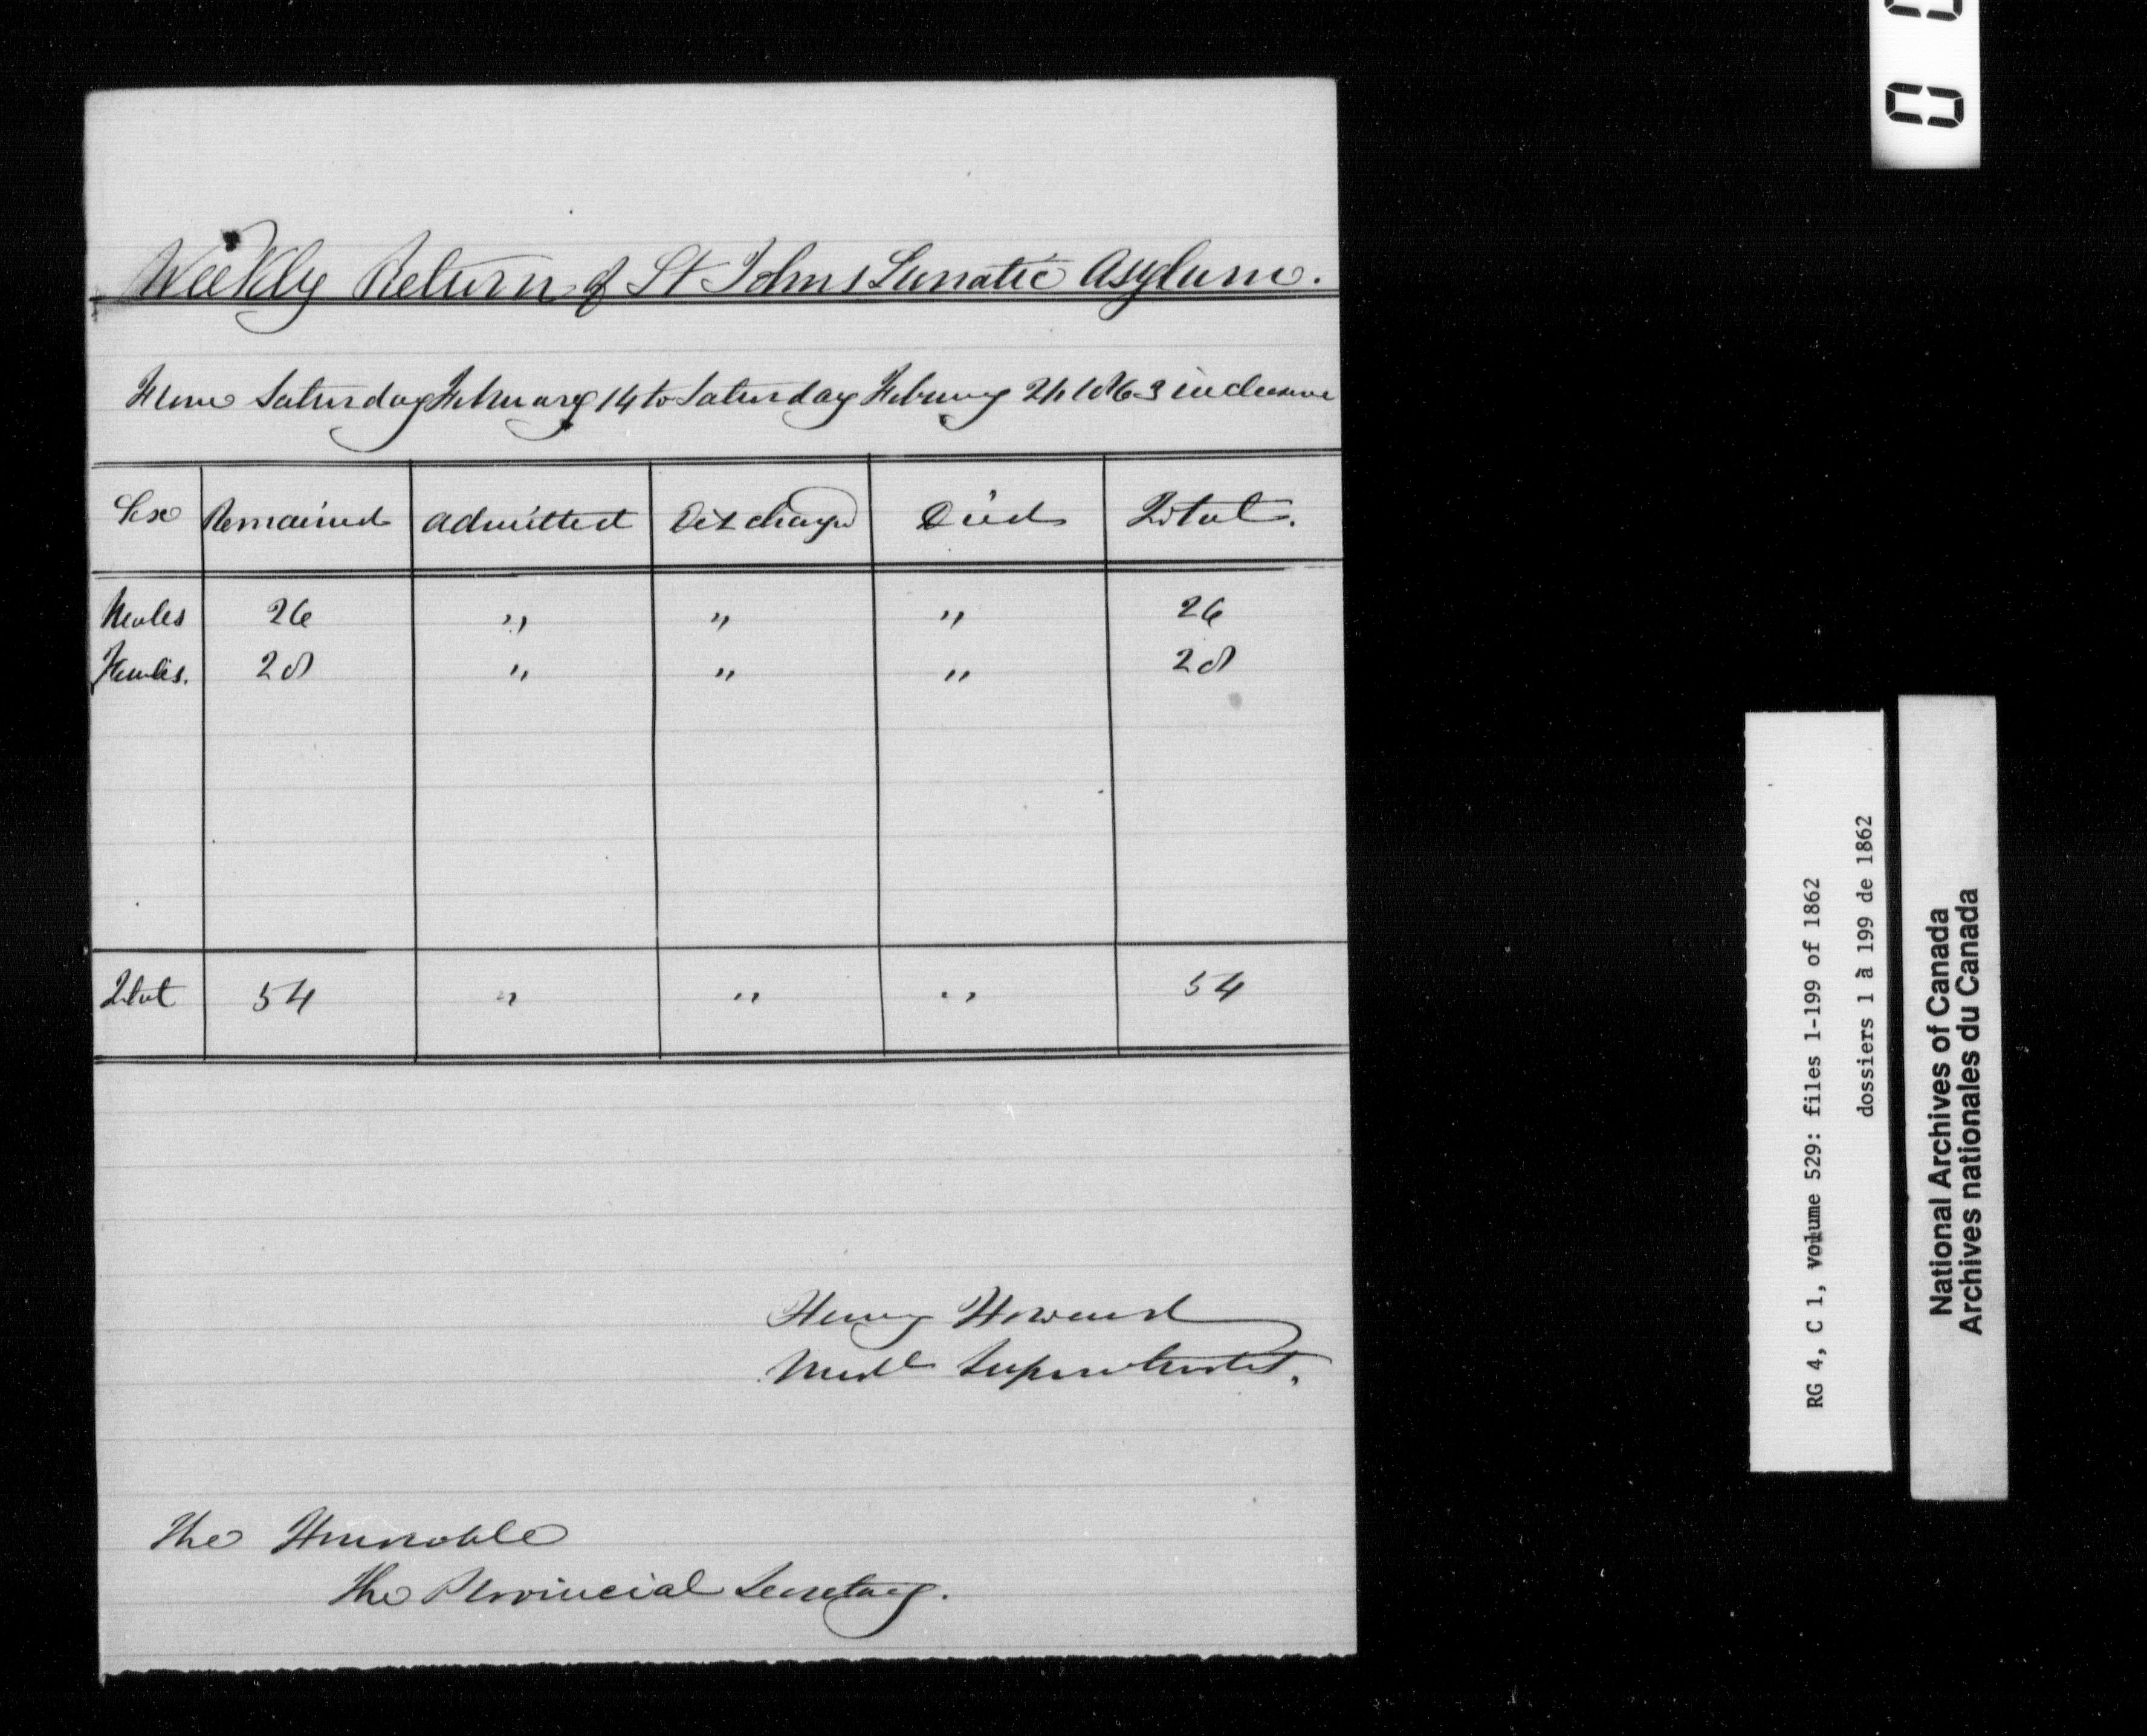 Weekly Return of St Johns Lunatic Asylum.
From Saturday February 14 to Saturday February 21 1863 inclusive
Sex Remained admitted Discharged Died Total.
Males 26 " " " 26
Females. 28 " " " 28
Total 54 " " " 54
Henry Howard
Medl Superintendet.
The Honorable
The Provincial Secretary.
RG 4, C 1, volume 529: files 1-199 of 1862
dossiers 1 à 199 de 1862
National Archives of Canada
Archives nationales du Canada